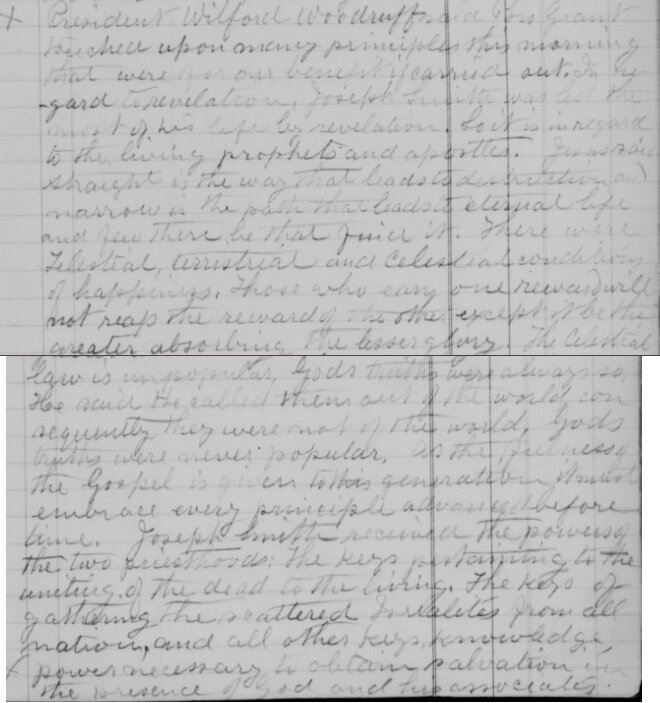 + President Wilford Woodruff said Pres Grant
touched upon many principles this morning
that were for our benefit if carried out. In re
-gard to revelation, Joseph Smith was led the
most of his life by revelation. So it is in regard
to the living prophets and apostles. Jesus said
straight is the way that leads to destruction and
narrow is the path that leads to eternal life
and few there be that find it. There were
Telestial, terrestrial and Celestial conditions
of happiness. Those who earn one reward will
not reap the reward of the other except it be the
greater absorbing the lesser glory. The Celestial
law is unpopular, Gods truths were always so,
He said He called them out of the world con
sequently they were not of the world, Gods
truths were never popular, As the fulness of
the Gospel is given to this generation it must
embrace every principle advanced before
time. Joseph Smith received the powers of
the two priesthoods: The keys pertaining to the
uniting of the dead to the living. The keys of
gathering the scattered Israelites from all
nation, and all other keys, knowledge
+ power necessary to obtain salvation in
the presence of God and his associates.